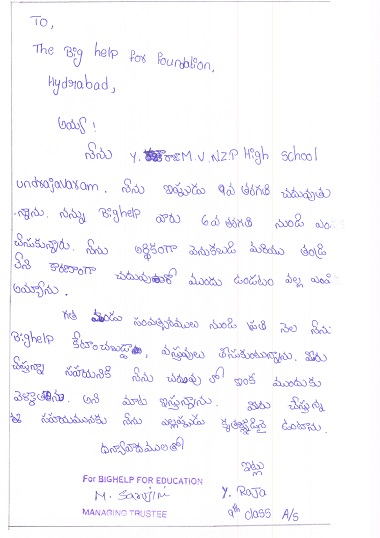 To,
The Big help For Foundtion,
Hyderabad,
అయ్యా !
నేను Y. రాజా M.V.N.Z.P High school
undrajavaram. నేను ఇప్పుడు 9వ తరగతి చదువుతు
న్నాను. నన్ను Bighelp వారు 6వ తరగతి నుండి ఎం
చేసుకున్నారు. నేను ఆర్థికంగా వెనుకబడి మరియు తండ్రి
లేని కారణంగా చదువులో ముందు ఉండటం వల్ల ఎంపి
అయ్యాను.
గత సంవత్సరముల నుండి ప్రతి నెల నేను
Bighelp వస్తువులు తీసుకుంటున్నాను. మీరు
చేస్తున్న సహాయానికి నేను చదువు లో ఇంక ముందుకు
వెళ్తాను. అని మాట ఇస్తున్నాను. మీరు చేస్తున్న
ఈ సహాయమునకు నేను ఎల్లప్పుడు కృతజ్ఞుడినై ఉంటాను.
ధన్యవాదములతో
ఇట్లు
For BIGHELP FOR EDUCATION
Y. Raja
MANAGING TRUSTEE
9th class A/s